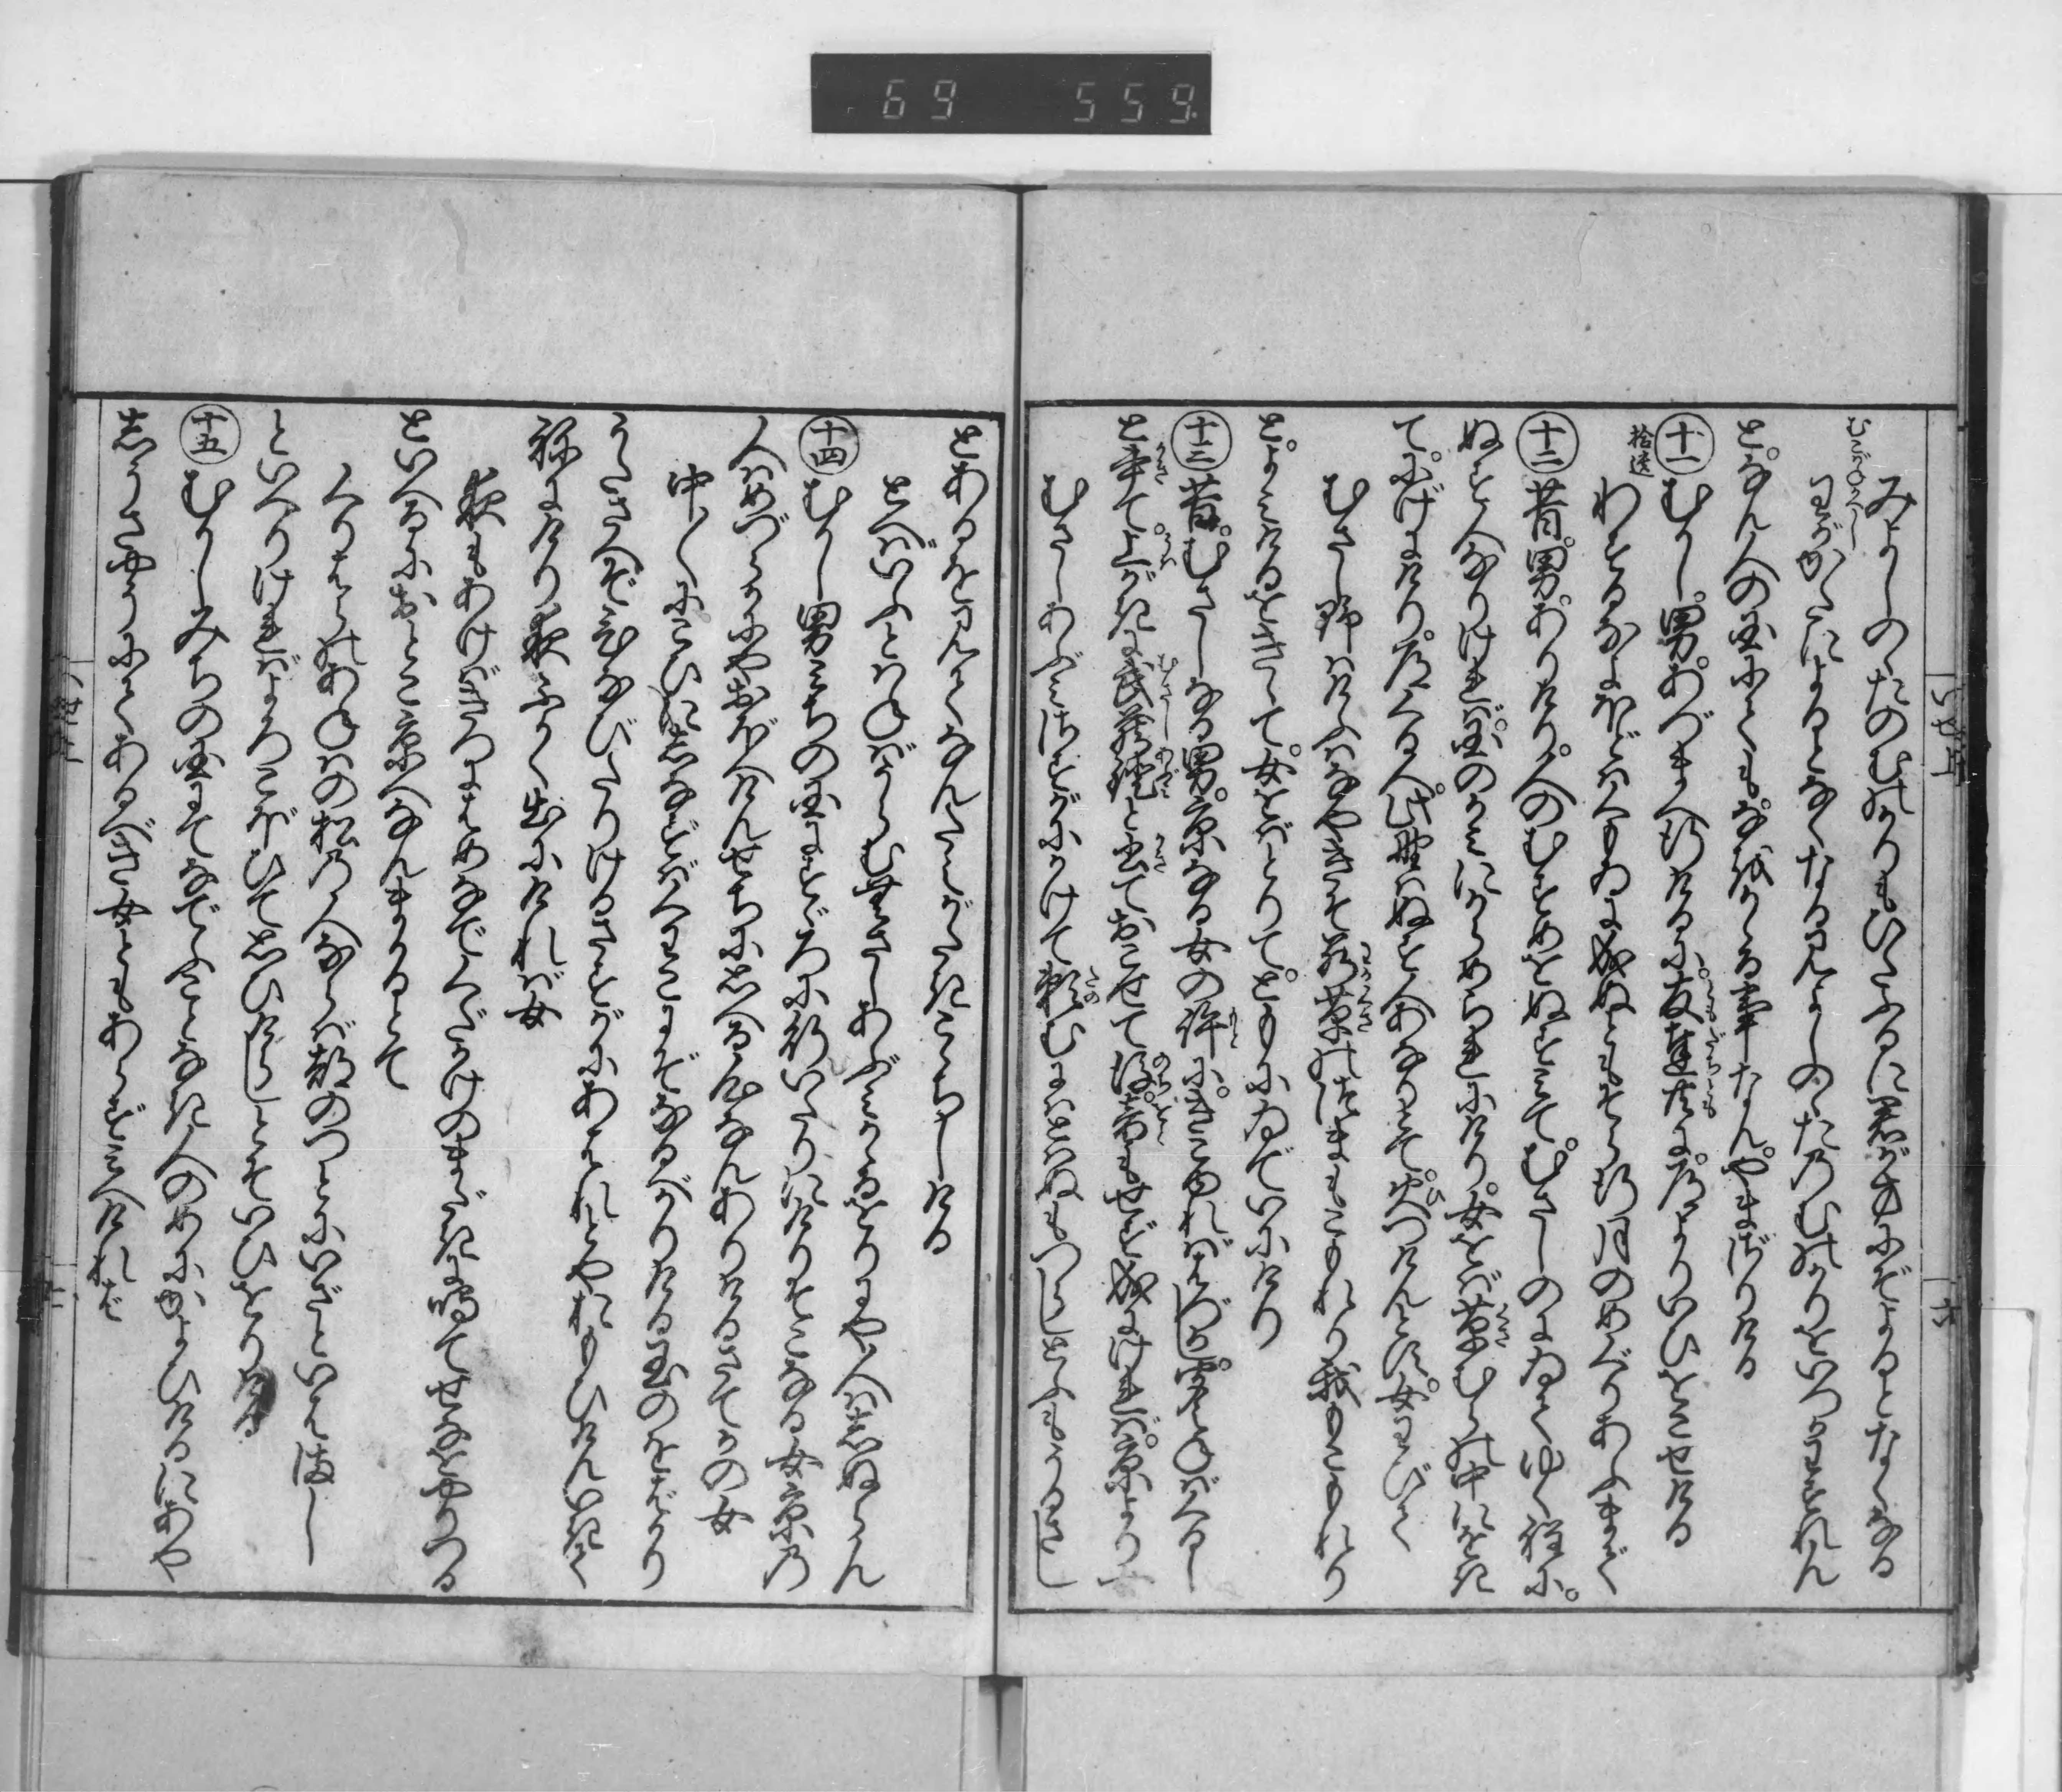 69 559
みよしのゝたのむのかりもひたふるに君が方にぞよるとなくなる
むこがねかへし
わがかたによるとなくなるみよしのゝたのむのかりをいつかわすれん
となん人の国にてもなをかゝる事なんやまざりける
十一 むかし男あづまへ行けるに友達共に道よりいひをこせける
拾遺
わするなよほどは雲ゐに成ぬとも空行月のめぐりあふまで
十二 昔男ありけり人のむすめをぬすみてむさしのへゐてゆく程に
ぬす人なりければ国のかみにからめられにけり女をば草むらの中にをき
てにげにけり道くる人此野はぬす人あなりとて火つけんとす女わびて
むさし野はけふはなやきそ若草のつまもこもれり我もこもれり
とよみけるをきゝて女をばとりてともにゐていにけり
十三 昔むさしなる男京なる女の許にきこゆればはづかし聞えねばくるし
と書て上がきに武蔵鐙と書ておこせて後音もせず成にければ京より女
むさしあぶみさすがにかけて頼むにはとはぬもつらしとふもうるさし
とあるを見てなんたへがたき心ちしける
とへばいふとはねばうらむむさしあぶみかゝるおりにや人はしぬらん
十四 むかし男みちの国にすゞろに行いたりにけりそこなる女京の
人はめづらかにやおぼへけんせちに思へる心なんありけるさてかの女
中〳〵に恋にしなずはくはこにぞなるべかりける玉のをばかり
うたさへぞひなびたりけるさすがにあはれとや思ひけんいきて
ねにけり夜ふかく出にければ女
夜もあけばきつにはめなでくだかけのまだきに鳴てせなをやりつる
といへるにおとこ京へなんまかるとて
くりはらのあねはの松の人ならば都のつとにいざといはましを
といへりければよろこぼひて思ひけらしとぞいひをりける
十五 むかしみちの国にてなでふことなき人のめにかよひけるにあや
しうさやうにてあるべき女ともあらず見へければ